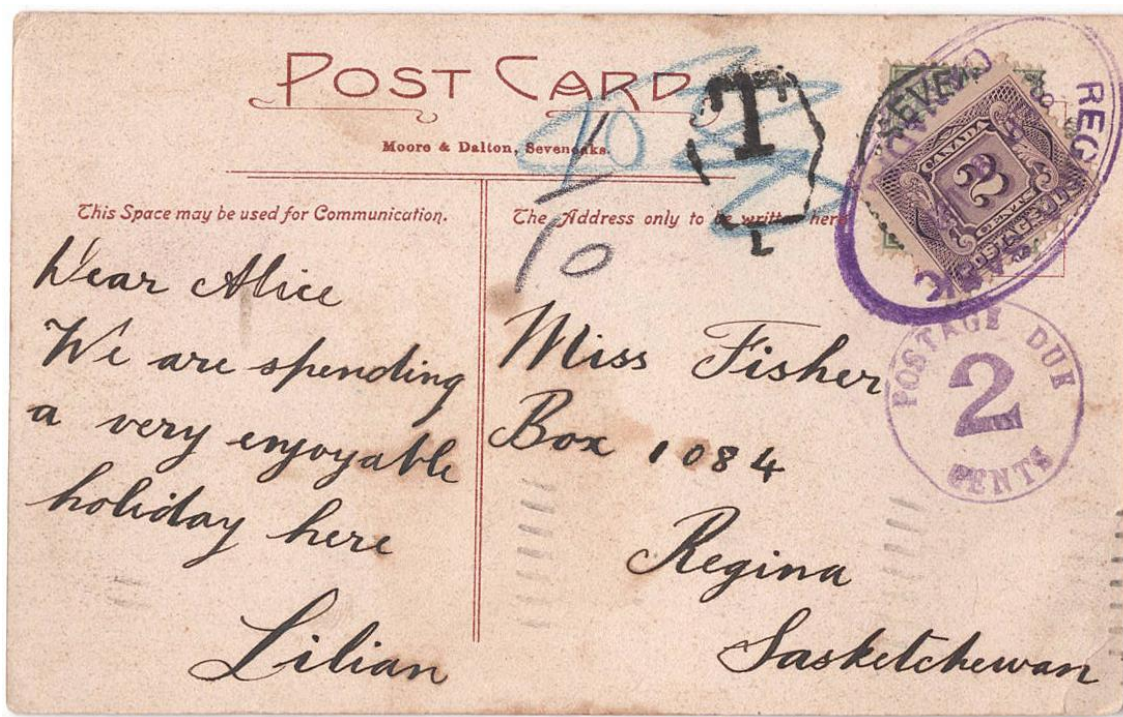 POST CARD
Moore & Dalton, Sevenoaks.
This Space may be used for Communication.
The Address only to be written here
T
L
10
10
SEVEN
REG
CANADA
2
CENTS
POSTAGE DUE
POSTAGE DUE
2
CENTS
Dear Alice
We are spending
a very enjoyable
holiday here
Lilian
Miss Fisher
Box 1084
Regina
Sasketchewan